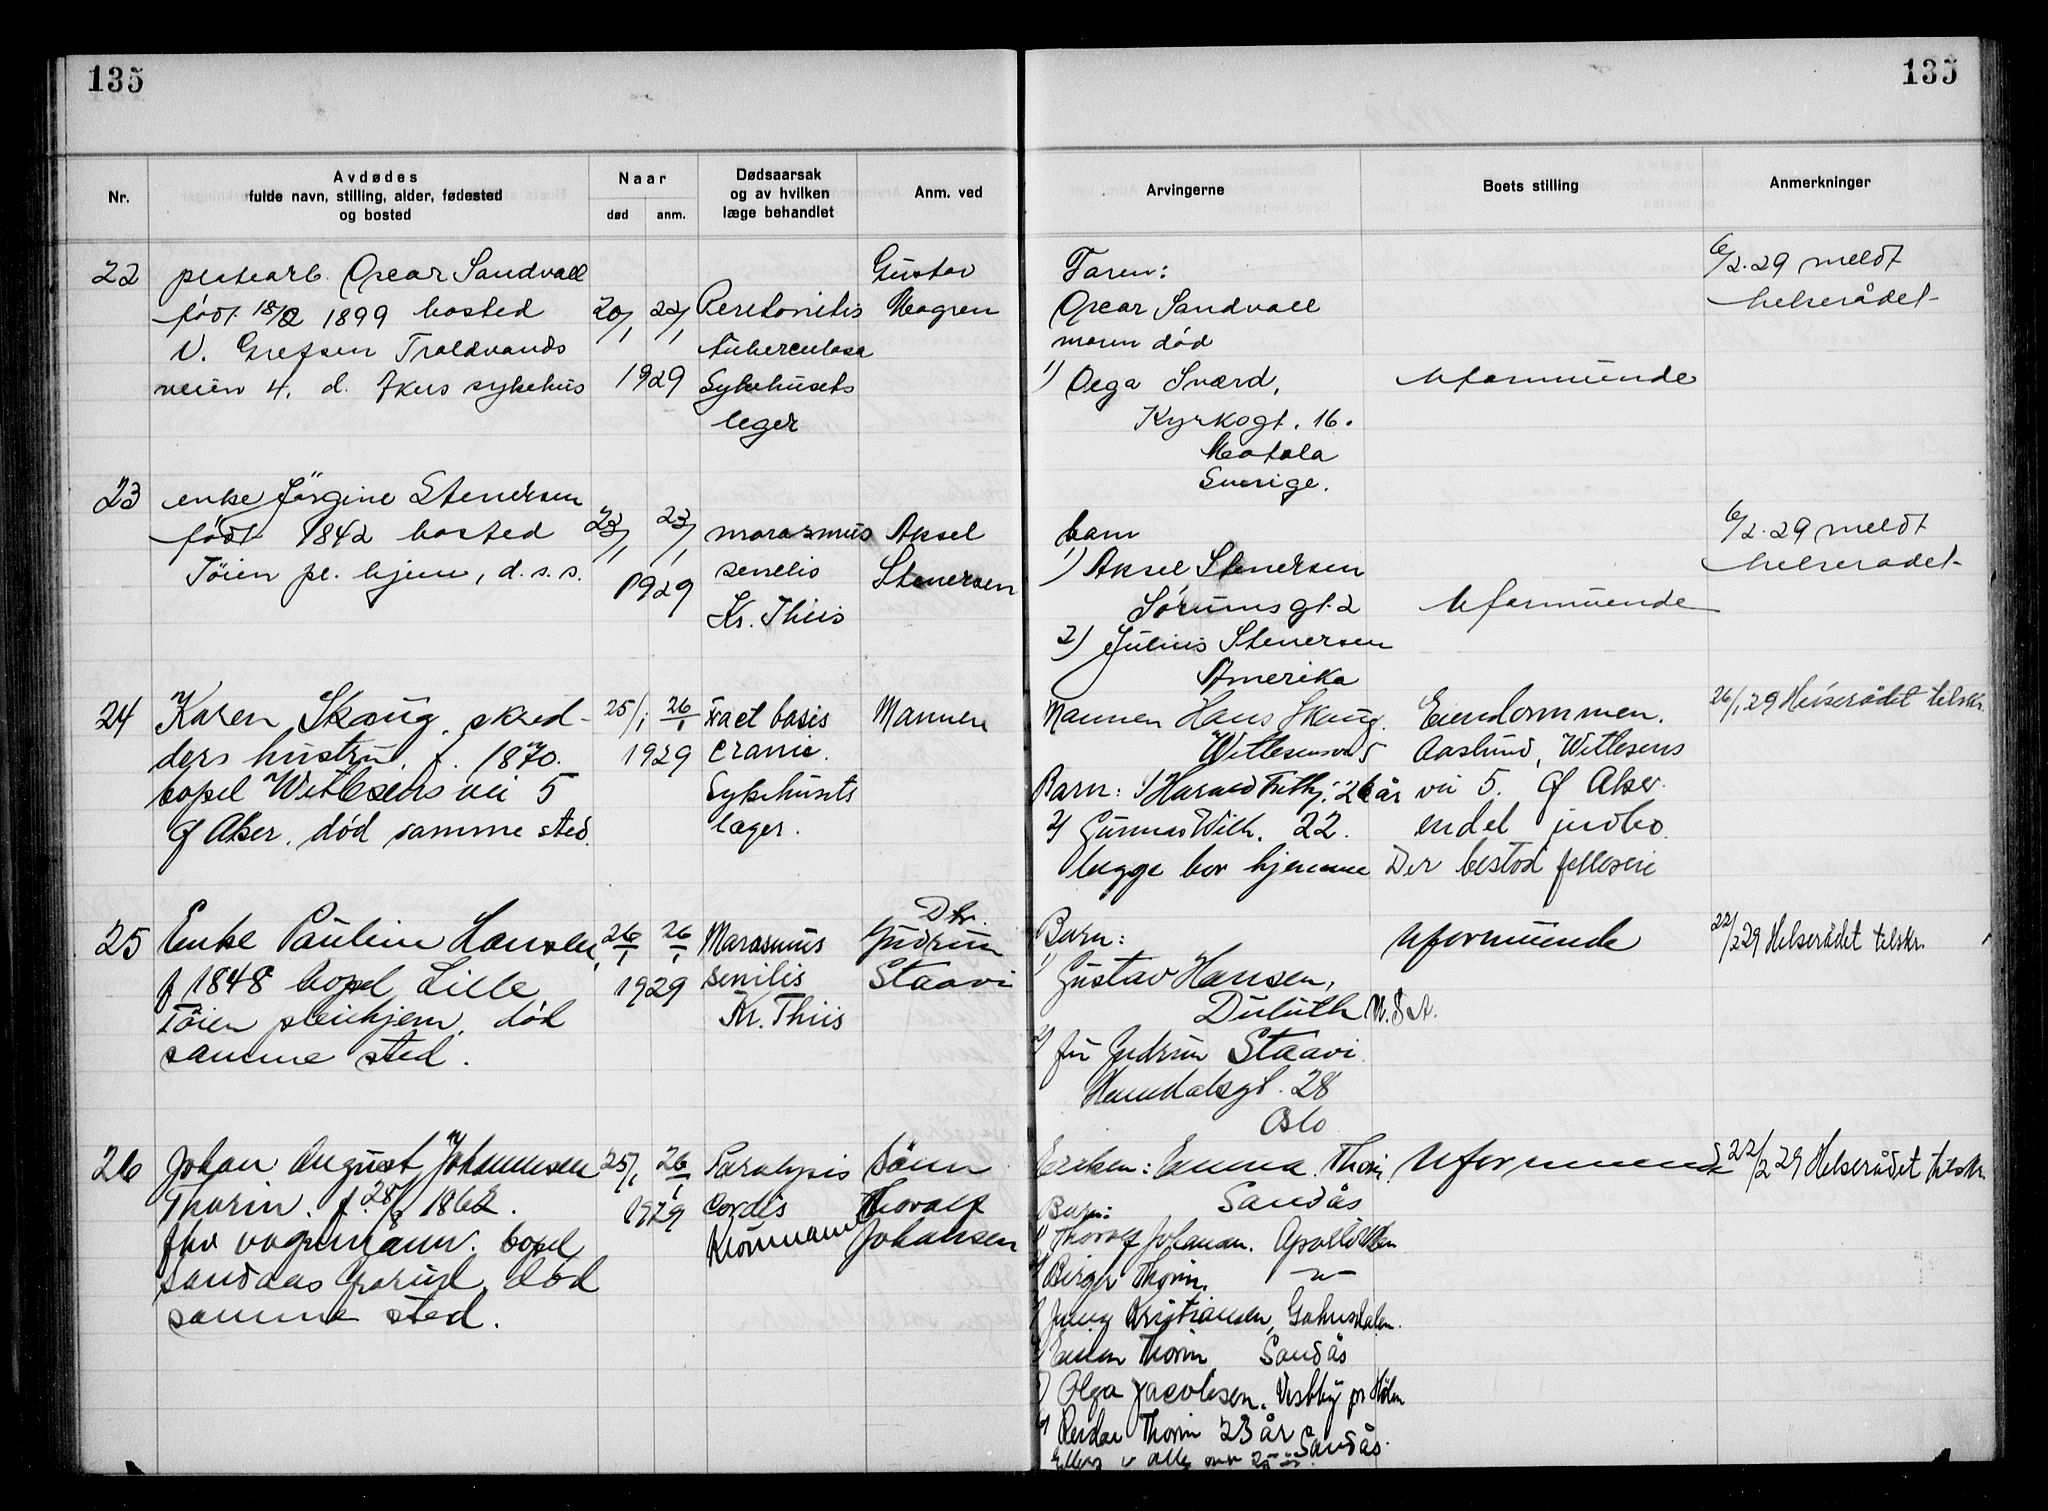 135
135
Nr.
Avdødes
fulde navn, stilling, alder, fødested
og bosted
Naar
død
anm.
Dødsaarsak
og av hvilken
læge behandlet
Anm. ved
Arvingerne
Boets stilling
Anmerkninger
22
Oscar Sandvall
født 18/2 1899 bosted
V. Grefsen Troldvands
veien 4. d. Akers sykehus
20/1 22/1
1929
Peretonitis
tuberculosa
Sykehusets
leger
Gustav
Mogren
Faren:
Oscar Sandvall
moren død
1) Olga Sværd,
Kyrkogt. 16.
Motala
Sverige.
Uformuende
6/2.29 meldt
helserådet
23
enke Jörgine Stenersen
født 1842 bosted
Töien pl. hjem, d.s.s.
23/1 23/1
1929
marasmus
senelis
Kr. Thiis
Aksel
Stenersen
barn
1) Aksel Stenersen
Sörumsgt. 2
2) Julius Stenersen
Amerika
Uformuende
6/2.29 meldt
helserådet
24
Karen Skaug, skred-
ders hustru, f. 1870.
bopel Wittesens vei 5
Ø Aker. død samme sted.
25/1 26/1
1929
Fract basis
cranie.
Sykehusets
læger.
Mannen
Mannen Hans Skaug.
5
Barn: 1) Harald Frithj. 26 år
2) Gunnar Wilh. 22.
begge bor hjemme
Eiendommen.
Aaslund, Wittesens
vei 5. Ø Aker.
endel indbo.
Der bestod felleseie
26/1 29 Helserådet tilskr.
25
Enke Pauline Hansen,
f 1848 bopel Lille
Töien pleiehjem. död
samme sted.
26/1 26/1
1929
Marasmus
senilis
Kr. Thiis
Dtr.
Gudrun
Staavi
Barn:
1) Gustav Hansen,
Duluth U.S.A.
2) fru Gudrun Staavi
Heimdalsgt. 28
Oslo
Uformuende
22/2 29 Helserådet tilskr.
26
Johan August Johannesen
Thorin. f. 28/8 1862.
fhv vognmann. bopel
Sandaas Grorud, död
samme sted.
25/1 26/1
1929
Paralysis
cordis
Sönn
Thoralf
Johansen
Enken: Emma Thorin
Sandås
Barn:
1) Thoralf Johansen.
2) Birger Thorin.
3) Jenny Kristiansen,
4) Thorin Sandås
5) Olga Jacobsen.
6) Reidar Thorin 23 år Sandås.
Uformuende
22/2 29 Helserådet tilskr.